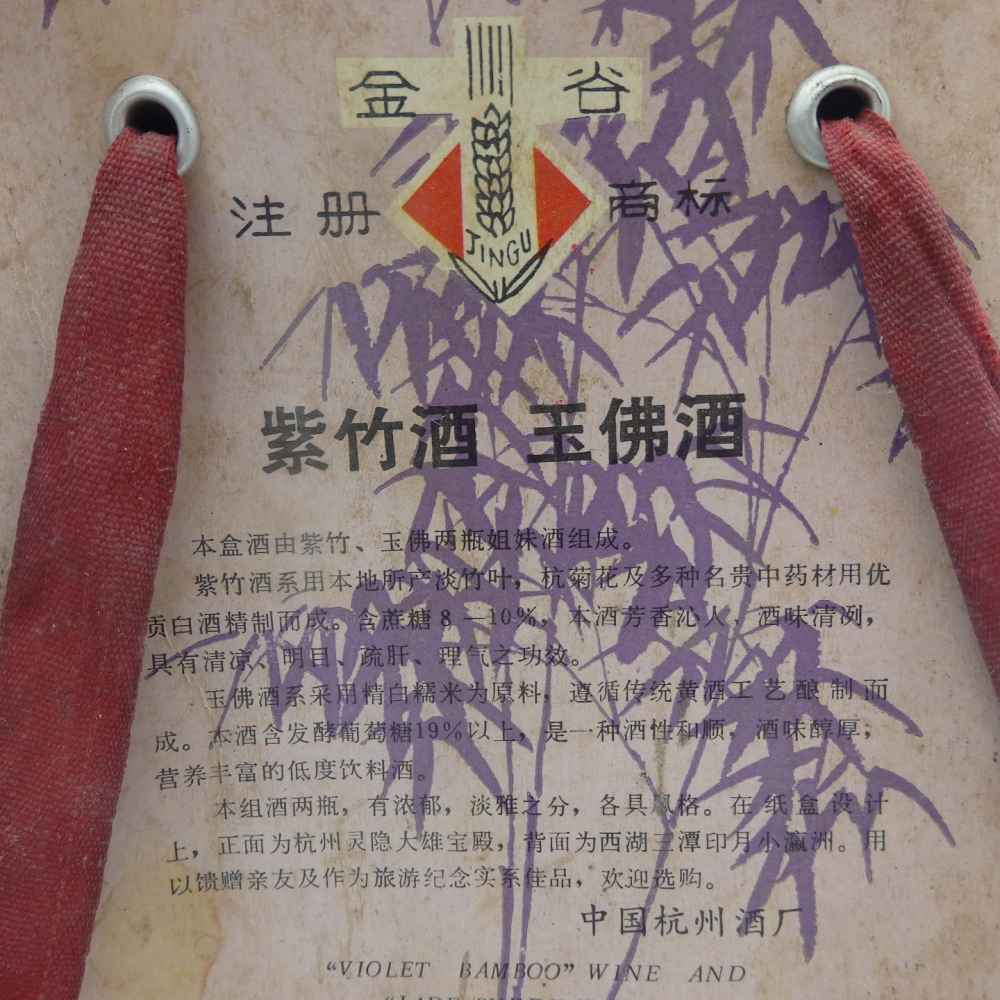 金谷
JINGU
注册 商标
紫竹酒 玉佛酒
本盒酒由紫竹、玉佛两瓶姐妹酒组成。
紫竹酒系用本地所产淡竹叶，杭菊花及多种名贵中药材用优
质白酒精制而成。含蔗糖8—10%，本酒芳香沁人，酒味清冽，
具有清凉、明目、疏肝、理气之功效。
玉佛酒系采用精白糯米为原料，遵循传统黄酒工艺酿制而
成。本酒含发酵葡萄糖19%以上，是一种酒性和顺，酒味醇厚；
营养丰富的低度饮料酒。
本组酒两瓶，有浓郁，淡雅之分，各具风格。在纸盒设计
上，正面为杭州灵隐大雄宝殿，背面为西湖三潭印月小瀛洲。用
以馈赠亲友及作为旅游纪念实系佳品，欢迎选购。
中国杭州酒厂
“VIOLET BAMBOO” WINE AND